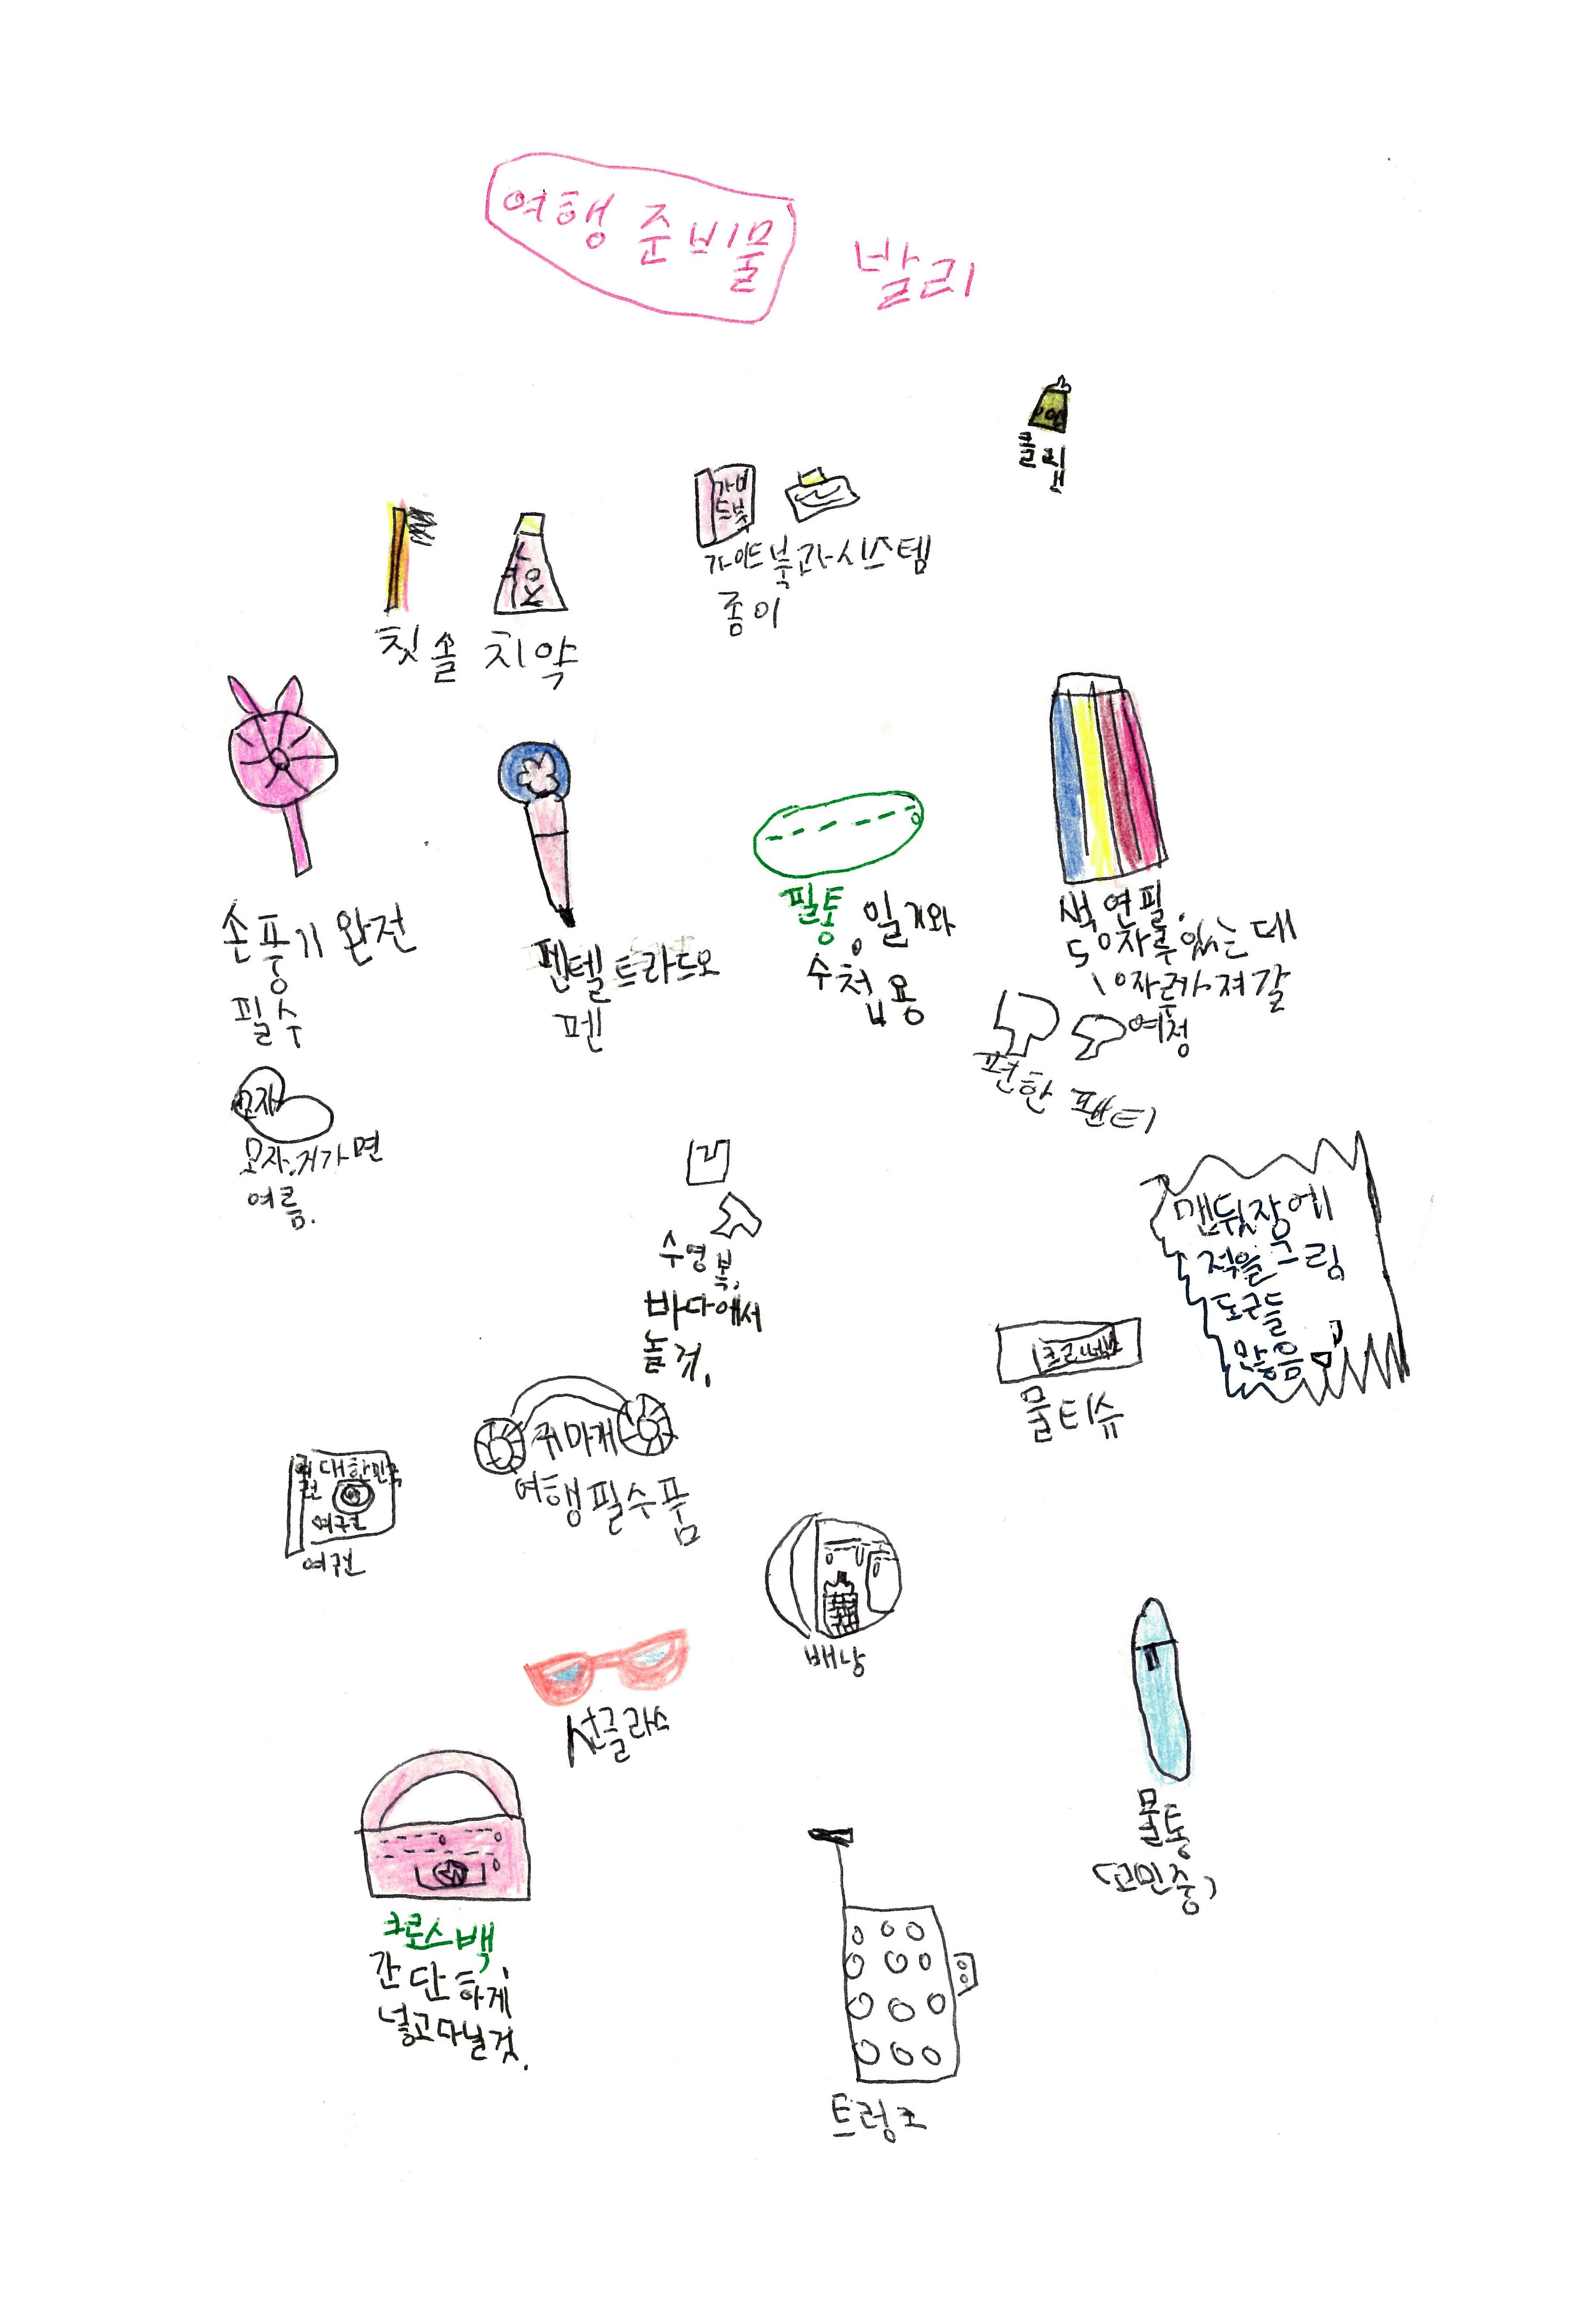 여행 준비물
발리
클립
가이드북과 시스템
종이
칫솔
치약
손풍기 완전
필수
펜텔 트라디오
펜
필통, 일기와
수첩용
색연필.
50자루 있는데
10자루 가져갈
예정
편한 팬티
모자
모자. 거가면
여름.
수영복.
바다에서
놀 것.
맨 뒷장에
적을 그림
도구들
많음
크리넥스
물티슈
귀마개
여행필수품
대한민국
여권
여권
배낭
선글라스
물통
(고민중)
크로스백,
간단하게
넣고다닐것.
트렁크